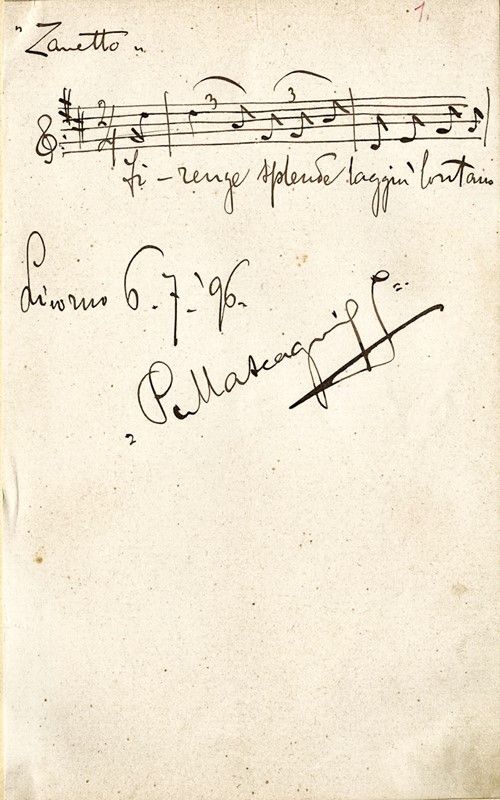 1.
"Zanetto"
2/4
3 3
Fi - renze splende laggiù lontano
Livorno 6.7.'96.
P. Mascagni